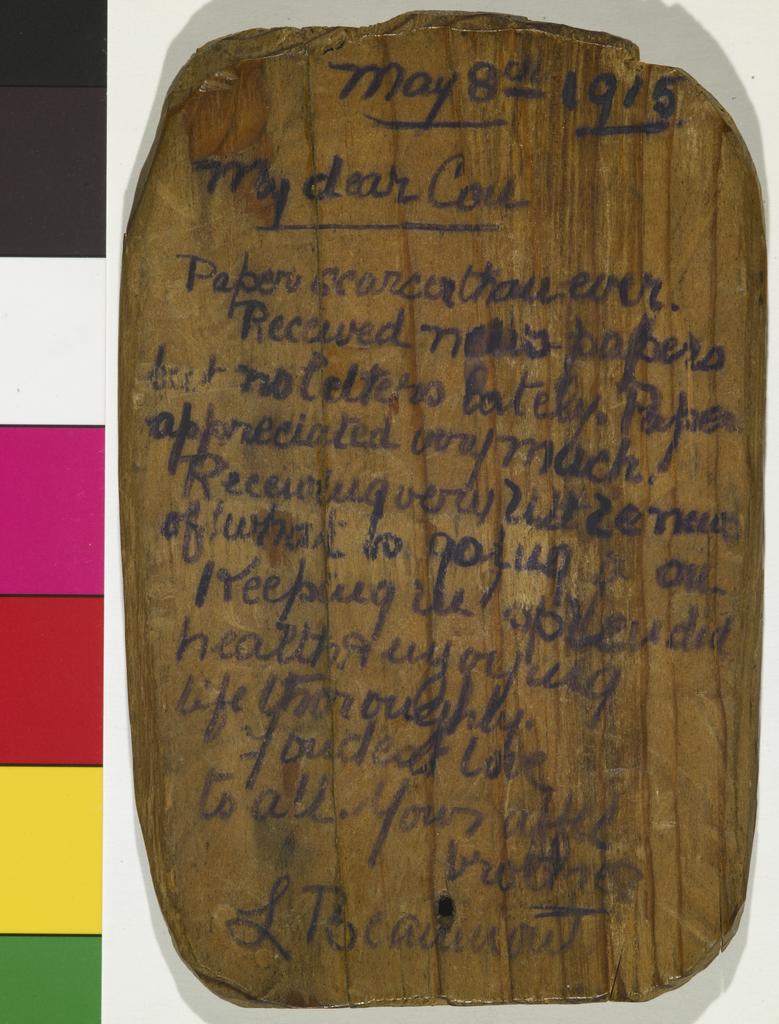 May 8th 1915
My dear Con
Paper scarcer than ever.
Received news papers
but no letters lately. Paper
appreciated very much.
Receiving very little news
of what is going on
Keeping in splendid
health & enjoying
life thoroughly.
Fondest love
to all. Your affec
brother
L Beaumont